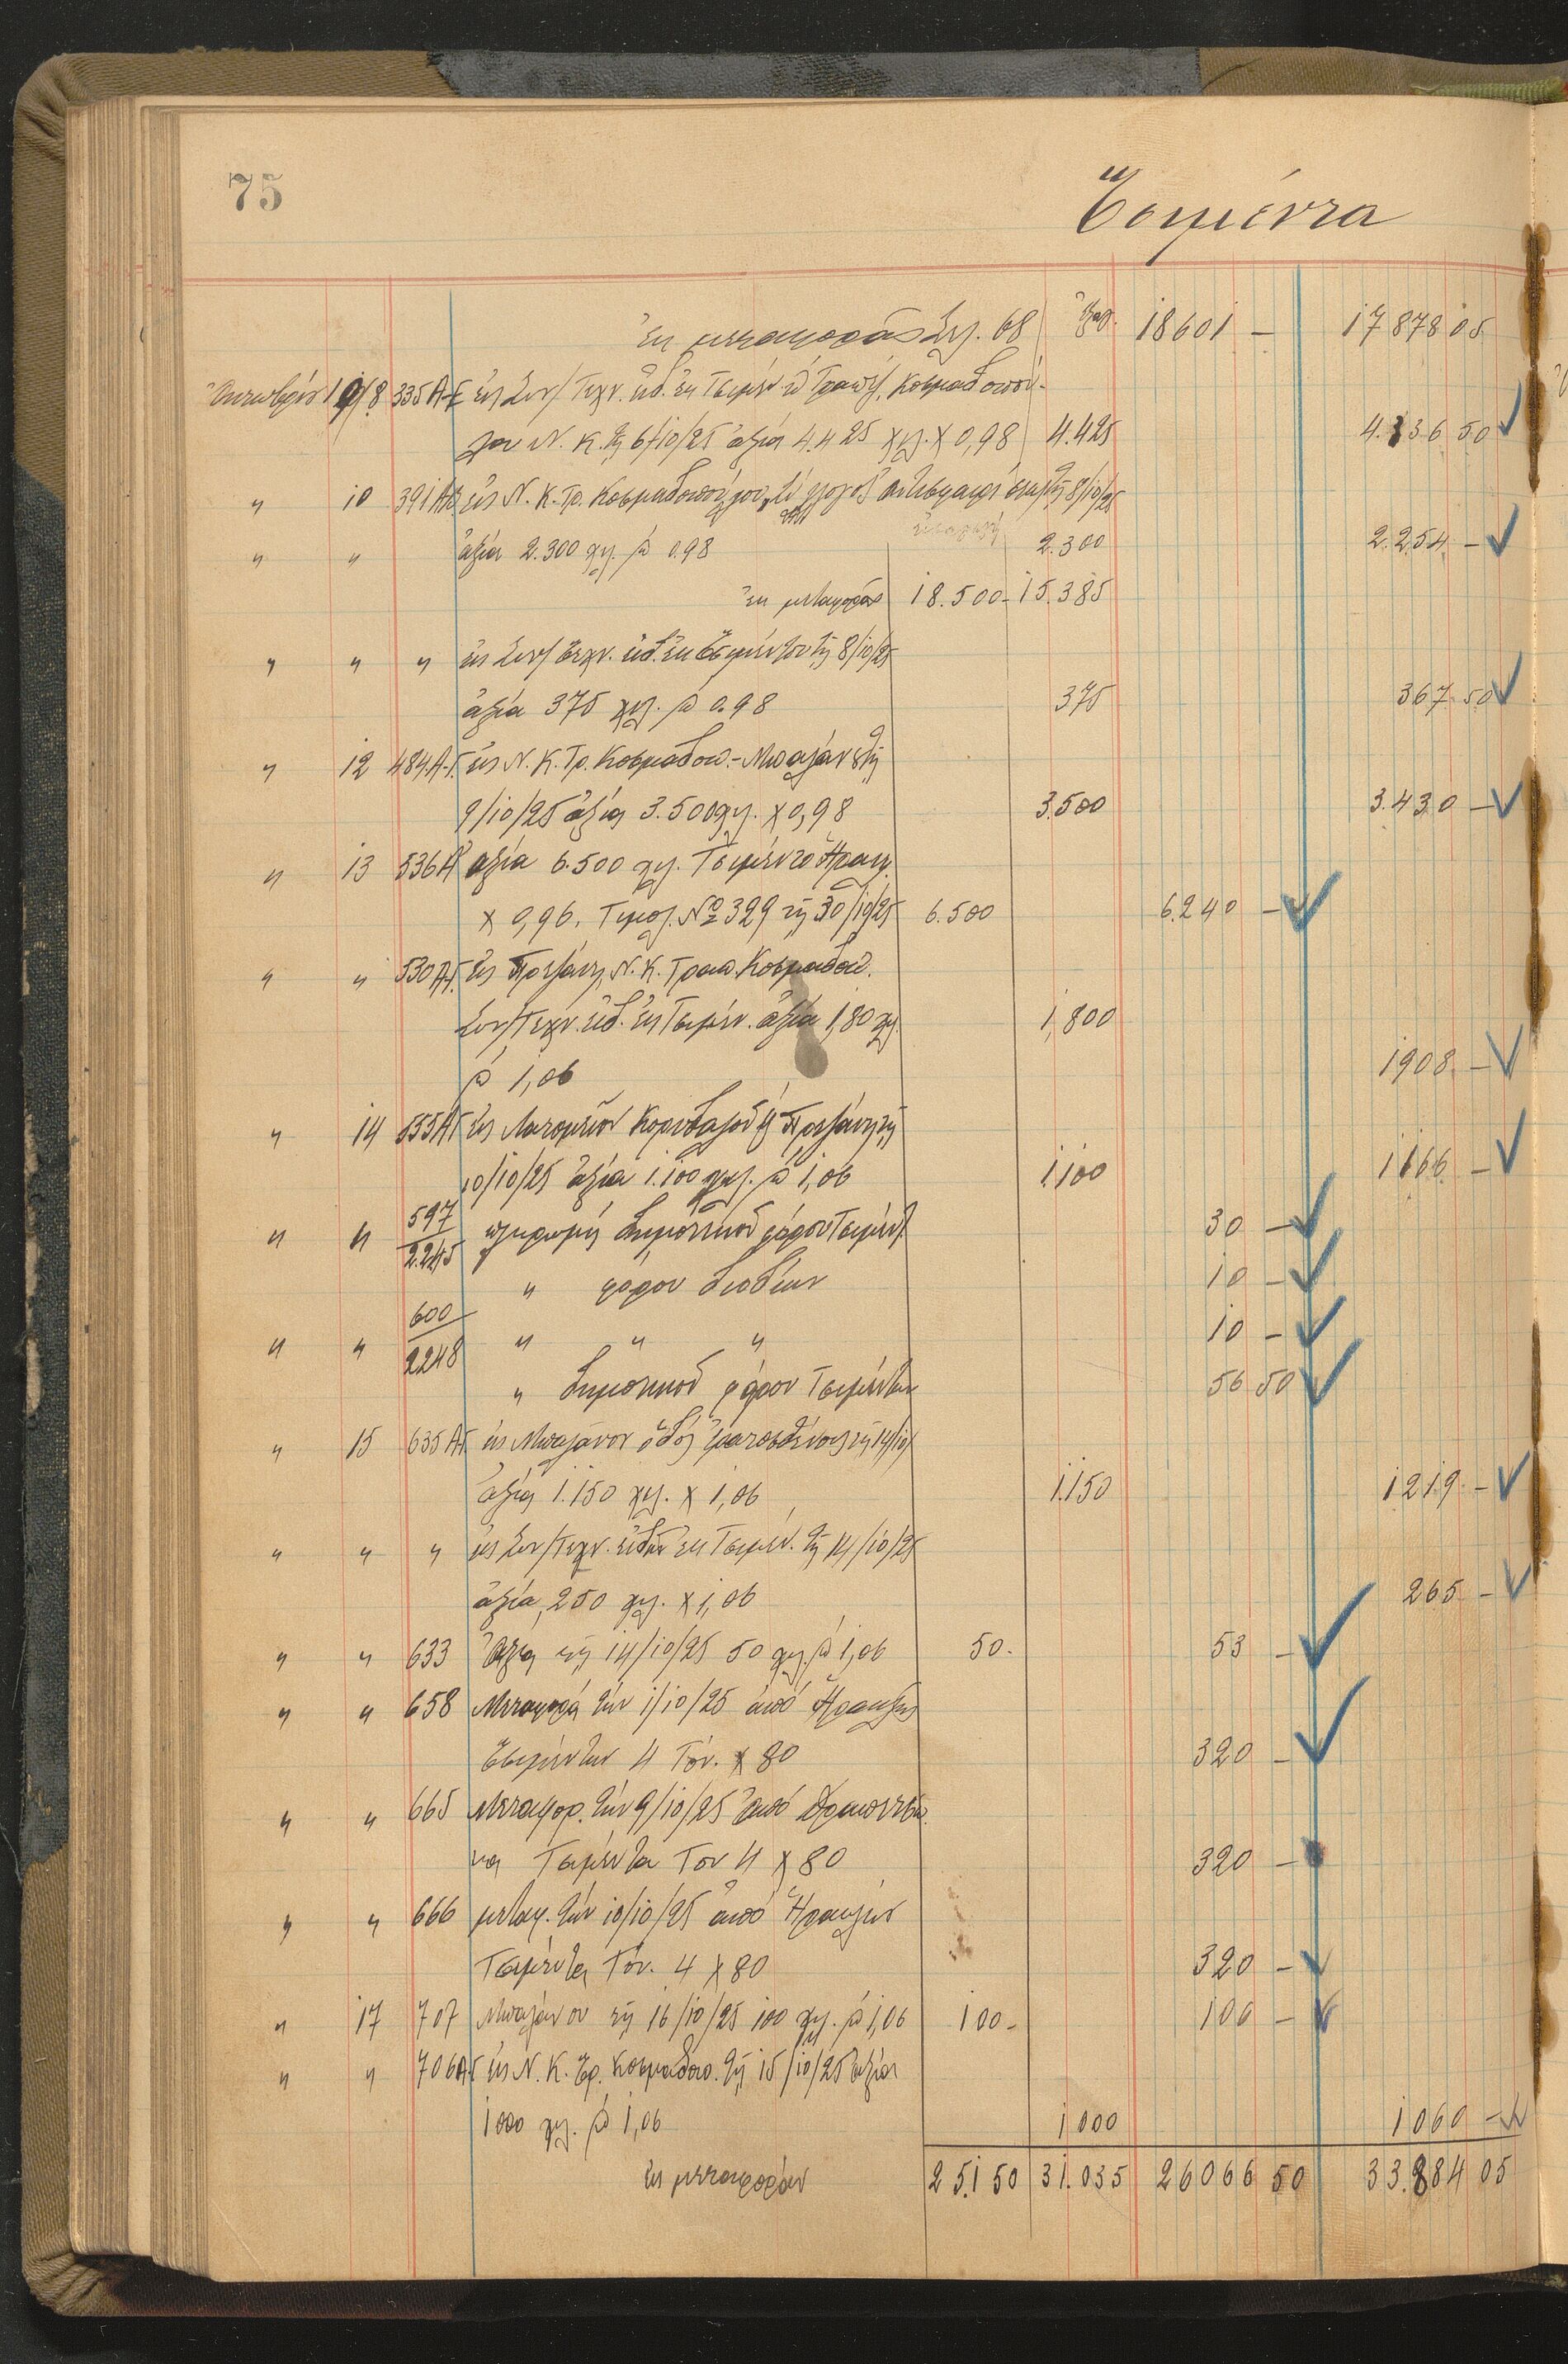 75
Τσιμέντα
Ἐκ μεταφορᾶς Σελ. 68 18601 – 17878 05
Ὀκτωβρίου 8 335 Α-Γ εἰς Συν/ Τεχν. εἰδ. ἐκ Τσιμέν. Τραπέζ. Κοσμαδοπού-
λου Ν. Κ. τῇ 6/10/25 ἀξία 4.425 χλγ. χ 0,98 4.425 4.336 50
" 10 391 ΑΓ εἰς Ν. Κ. Τρ. Κοσμαδοπούλου 8/10/25
" " ἀξία 2.300 χλγ. ἀ 0.98 2.300 2.254 –
ἐκ μεταφορᾶς 18.500 – 15.385
" " " εἰς Συν/ Τεχν. εἰδ. ἐκ Τσιμέντου τῇ 8/10/25
ἀξία 375 χλγ. ἀ 0.98 375 367 50
" 12 484 Α-Γ εἰς Ν. Κ. Τρ. Κοσμαδοπ. – Μπαλάν τῇ
9/10/25 ἀξία 3.500 χλγ. χ 0,98 3.500 3.430 –
" 13 536 Α ἀξία 6.500 χλγ. Τσιμέντο Ἡρακλ.
χ 0,96. Τιμολ. Νο 329 τῇ 30/10/25 6.500 6.240 –
" " 530 Α.Γ. εἰς Πρεζάνη, Ν. Κ. Τραπ. Κοσμαδοπ.
Συν/Τεχν. εἰδ. ἐκ Τσιμέν. ἀξία 1,80 χλγ. 1,800
ἀ 1,06 1908 –
" 14 555 ΑΓ εἰς Λατομεῖον Κορυδαλοῦ Πρεζάνη τῇ
10/10/25 ἀξία 1.100 χλγ. ἀ 1,06 1.100 1166 –
" " 597/2245 πληρωμή Δημοτικοῦ φόρου Τσιμέντ. 30 –
" φόρου διοδίων 10 –
" " 600/2248 " " " 10 –
" Δημοτικοῦ φόρου Τσιμέντων 56 50
" 15 635 ΑΓ εἰς Μπαλάνον ὁδός Ἐρατοσθένους τῇ 14/10/
ἀξία 1.150 χλγ. χ 1,06 1.150 1219 –
" " " εἰς Συν/Τεχν. εἰδῶν ἐκ Τσιμέν. τῇ 14/10/25
ἀξία, 250 χλγ. χ 1,06 265 –
" " 633 Ἀξία τῇ 14/10/25 50 χλγ. ἀ 1,06 50 – 53 –
" " 658 Μεταφορά τήν 1/10/25 ἀπό Ἡρακλῆς
Τσιμέντων 4 Τόν. χ 80 320 –
" " 665 Μεταφορ. τήν 9/10/25 ἀπό Δραπετσῶ
να Τσιμέντα Τον 4 χ 80 320 –
" " 666 μεταφ. τήν 10/10/25 ἀπό Ἡρακλῆς
Τσιμέντα Τόν. 4 χ 80 320 –
" 17 707 Μπαλάνου τῇ 16/10/25 100 χλγ. ἀ 1,06 100 – 106 –
" " 706 ΑΓ εἰς Ν. Κ. Τρ. Κοσμαδοπ. τῇ 15/10/25 ἀξία
1000 χλγ. ἀ 1,06 1000 1060 –
εἰς μεταφοράν 25.150 31.035 26066 50 33.884 05